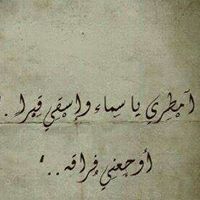 امْطِرِي يا سماء وإسْقِي قَبراً ..
أوجعني فُراقه .. "